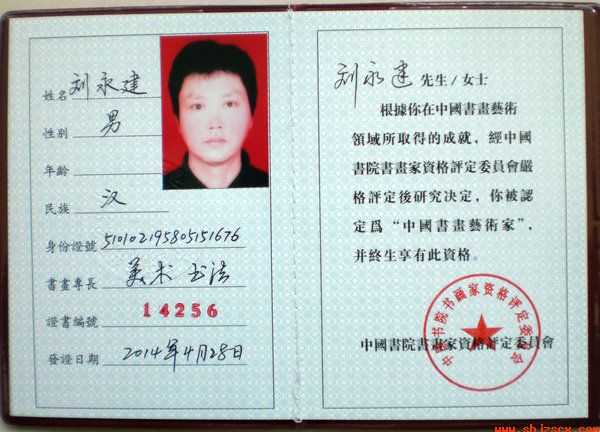 姓名 刘永建
性别 男
年齡
民族 汉
身份證號 510102195805151676
書畫專長 美术 书法
證書編號 14256
發證日期 2014年4月28日
刘永建 先生/女士
根據你在中國書畫藝術
領域所取得的成就，經中國
書院書畫家資格評定委員會嚴
格評定後研究決定，你被認
定爲“中國書畫藝術家”，
并終生享有此資格。
中国书院书画家资格评定委员会
中國書院書畫家資格評定委員會
www.shjzscx.com